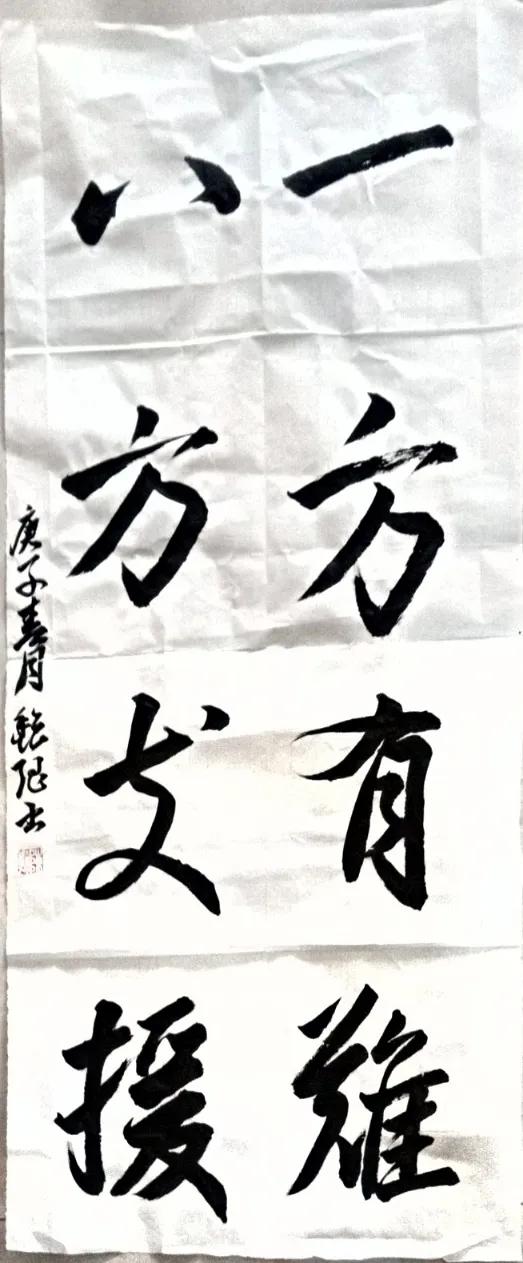 一方有難
八方支援
庚子春月
书